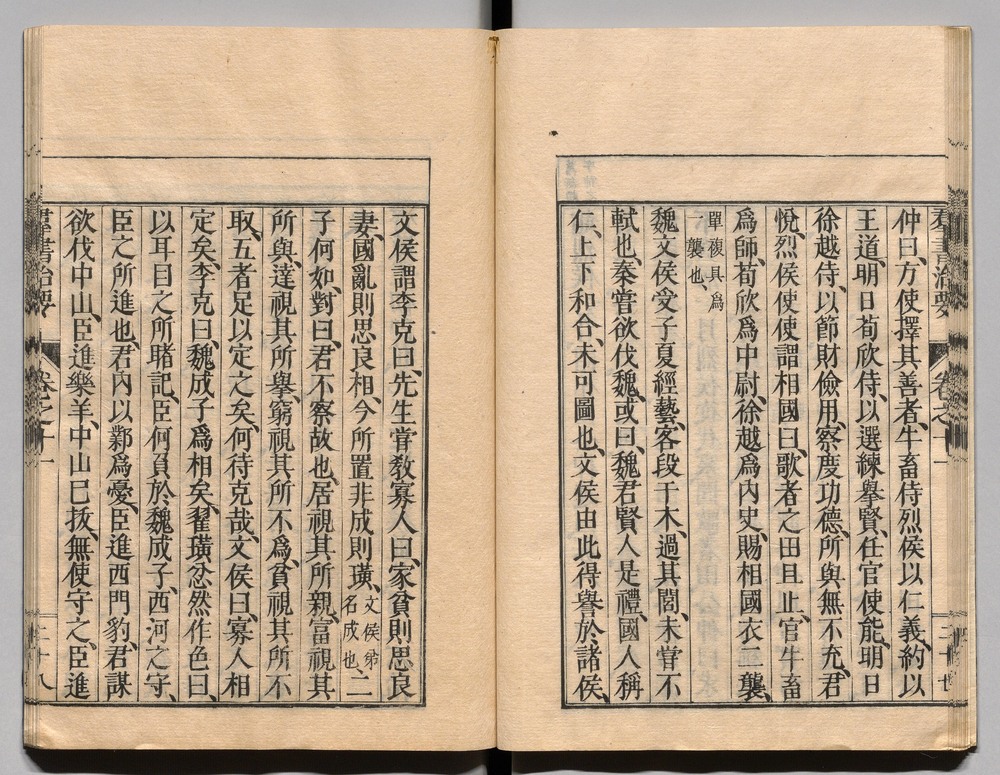 仲曰、方使擇其善者、牛畜侍烈侯以仁義、約以
王道、明日荀欣侍、以選練舉賢、任官使能、明日
徐越侍、以節財儉用、察度功德、所與無不充、君
悅、烈侯使使謂相國曰、歌者之田且止、官牛畜
爲師、荀欣爲中尉、徐越爲內史、賜相國衣二襲、
單複具爲
一襲也、
魏文侯受子夏經藝、客段干木、過其閭、未嘗不
軾也、秦嘗欲伐魏、或曰、魏君賢人是禮、國人稱
仁、上下和合、未可圖也、文侯由此得譽於諸侯、
文侯謂李克曰、先生嘗敎寡人曰、家貧則思良
妻、國亂則思良相、今所置非成則璜、文侯弟名成也、二
子何如、對曰、君不察故也、居視其所親、富視其
所與、達視其所舉、窮視其所不爲、貧視其所不
取、五者足以定之矣、何待克哉、文侯曰、寡人相
定矣、李克曰、魏成子爲相矣、翟璜忿然作色曰、
以耳目之所睹記、臣何負於魏成子、西河之守、
臣之所進也、君內以鄴爲憂、臣進西門豹、君謀
欲伐中山、臣進樂羊、中山已拔、無使守之、臣進
羣書治要 卷之十一 二十八